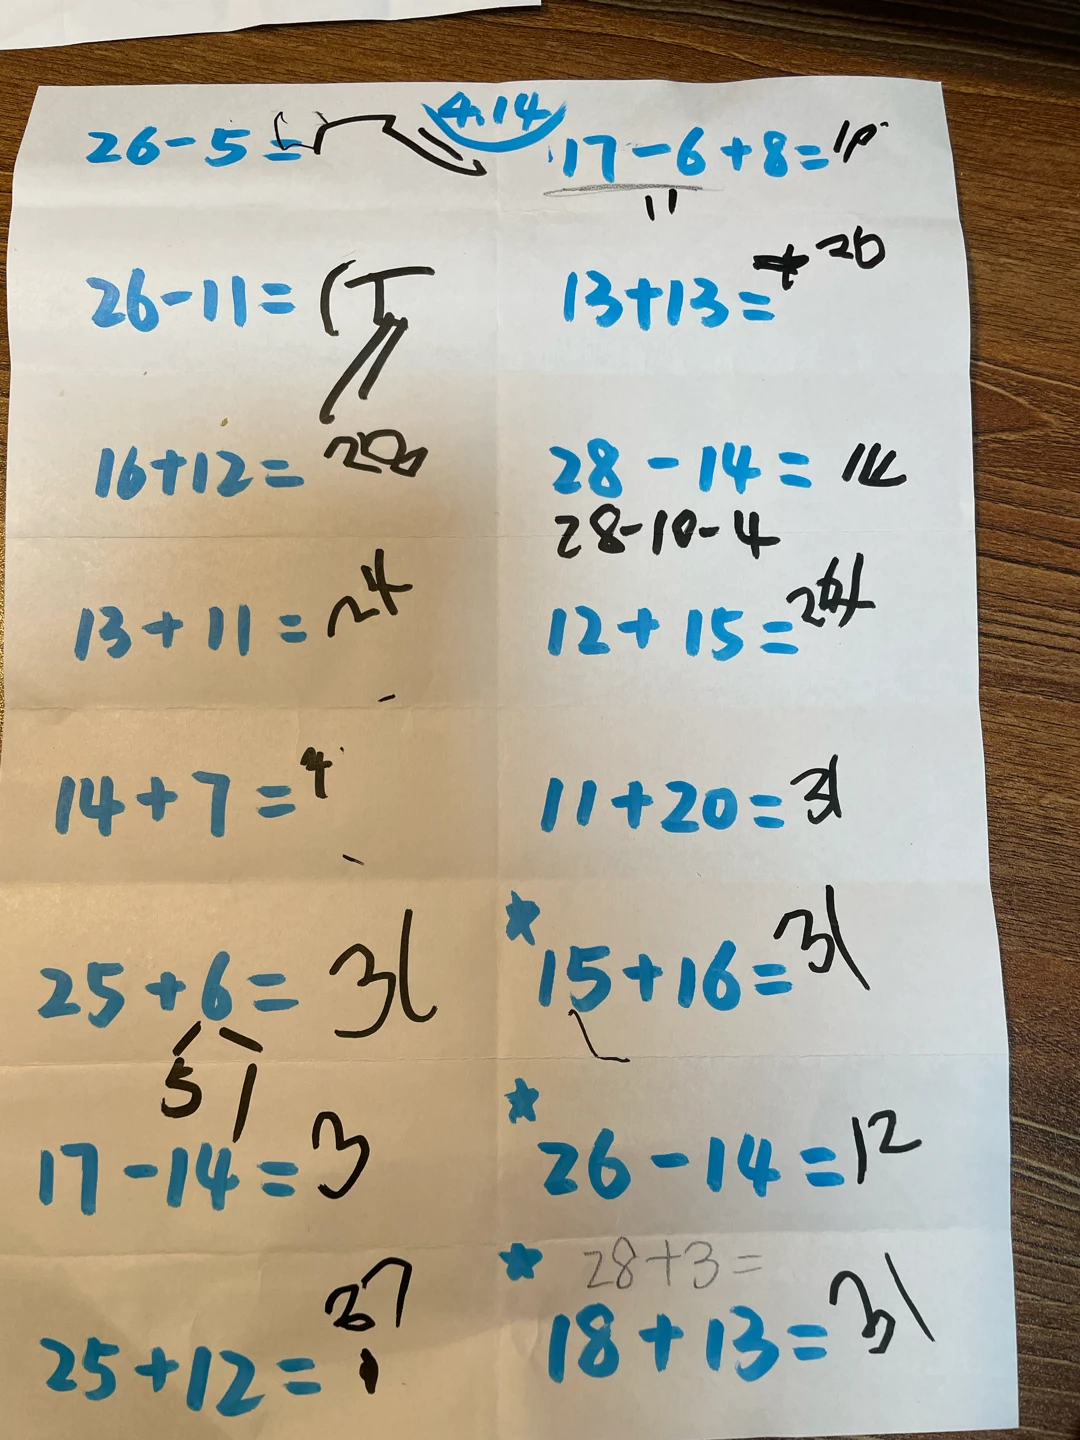 4.14
26-5=
17-6+8=
11
26-11=
13+13= 26
16+12=
28-14= 14
28-10-4
13+11=24
12+15=
14+7=
11+20=31
25+6=31
5 1
15+16=31
17-14=3
26-14=12
28+3=
25+12=37
18+13=31